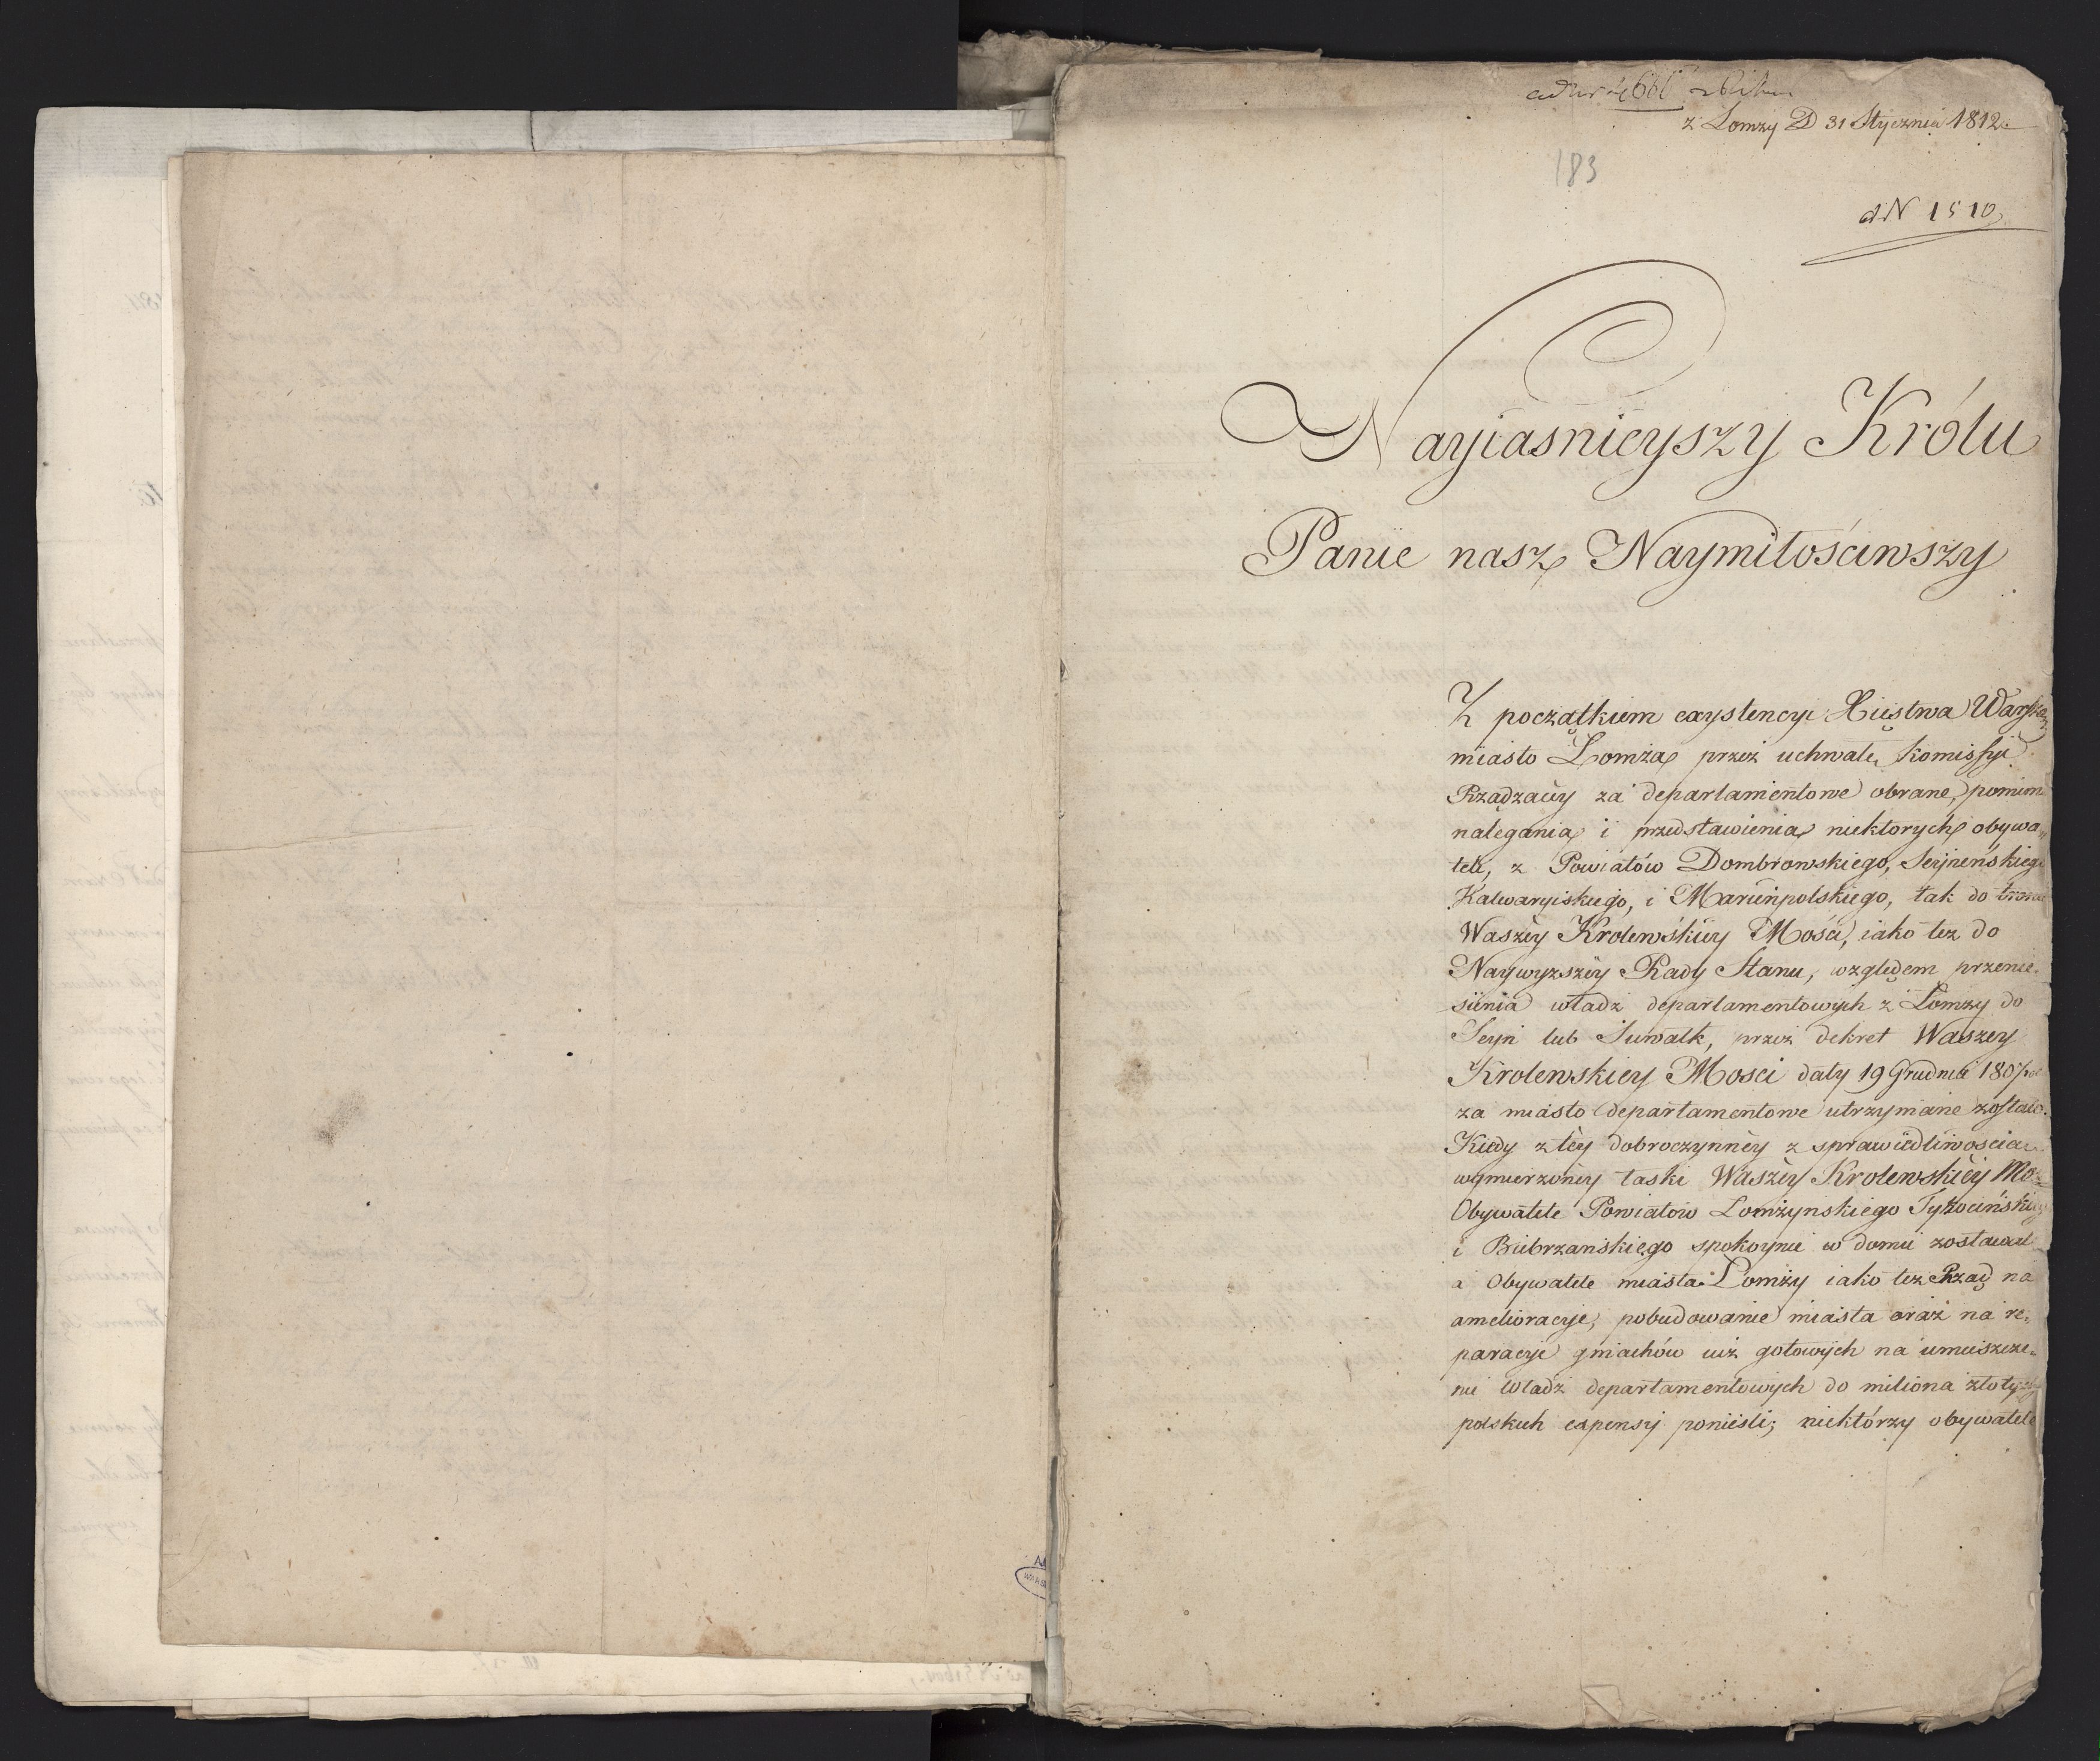 z Lomzy D 31 Stycznia 1812
183
dN 1510
Nayiasnieyszy Królu
Panie nasz Naymiłościwszy
Z początkiem exystencyi Xięstwa Warsza
miasto Lomża przez uchwałę Komissyi
Rządzącey za departamentowe obrane, pomimo
nalegania i przedstawienia niektorych obywa
teli, z Powiatów Dombrowskiego, Seyneńskiego
Kalwaryiskiego, i Maryinpolskiego, tak do tronu
Waszéy Krolewskiéy Mości, iako tez do
Naywyzszéy Rady Stanu, względem przenie-
sienia władz departamentowych z Lomzy do
Seyn lub Suwałk, przez dekret Waszey
Krolewskiey Mosci daty 19 Grudnia 1807
za miasto departamentowe utrzymane zostało.
Kiedy z téy dobroczynnéy z sprawiedliwoscia
wymierzonéy łaski Waszéy Krolewskiéy Mo-
Obywatele Powiatów Lomżynskiego Tykocińskiego
i Biebrzańskiego spokoynie w domu zostawali
a Obywatele miasta Lomży iako tez Rząd na
amelioracye, pobudowanie miasta oraz na re-
paracye gmachów iuż gotowych na umieszcze-
nie Władz departamentowych do miliona złotych
polskich expensy ponieśli; niektórzy obywatele